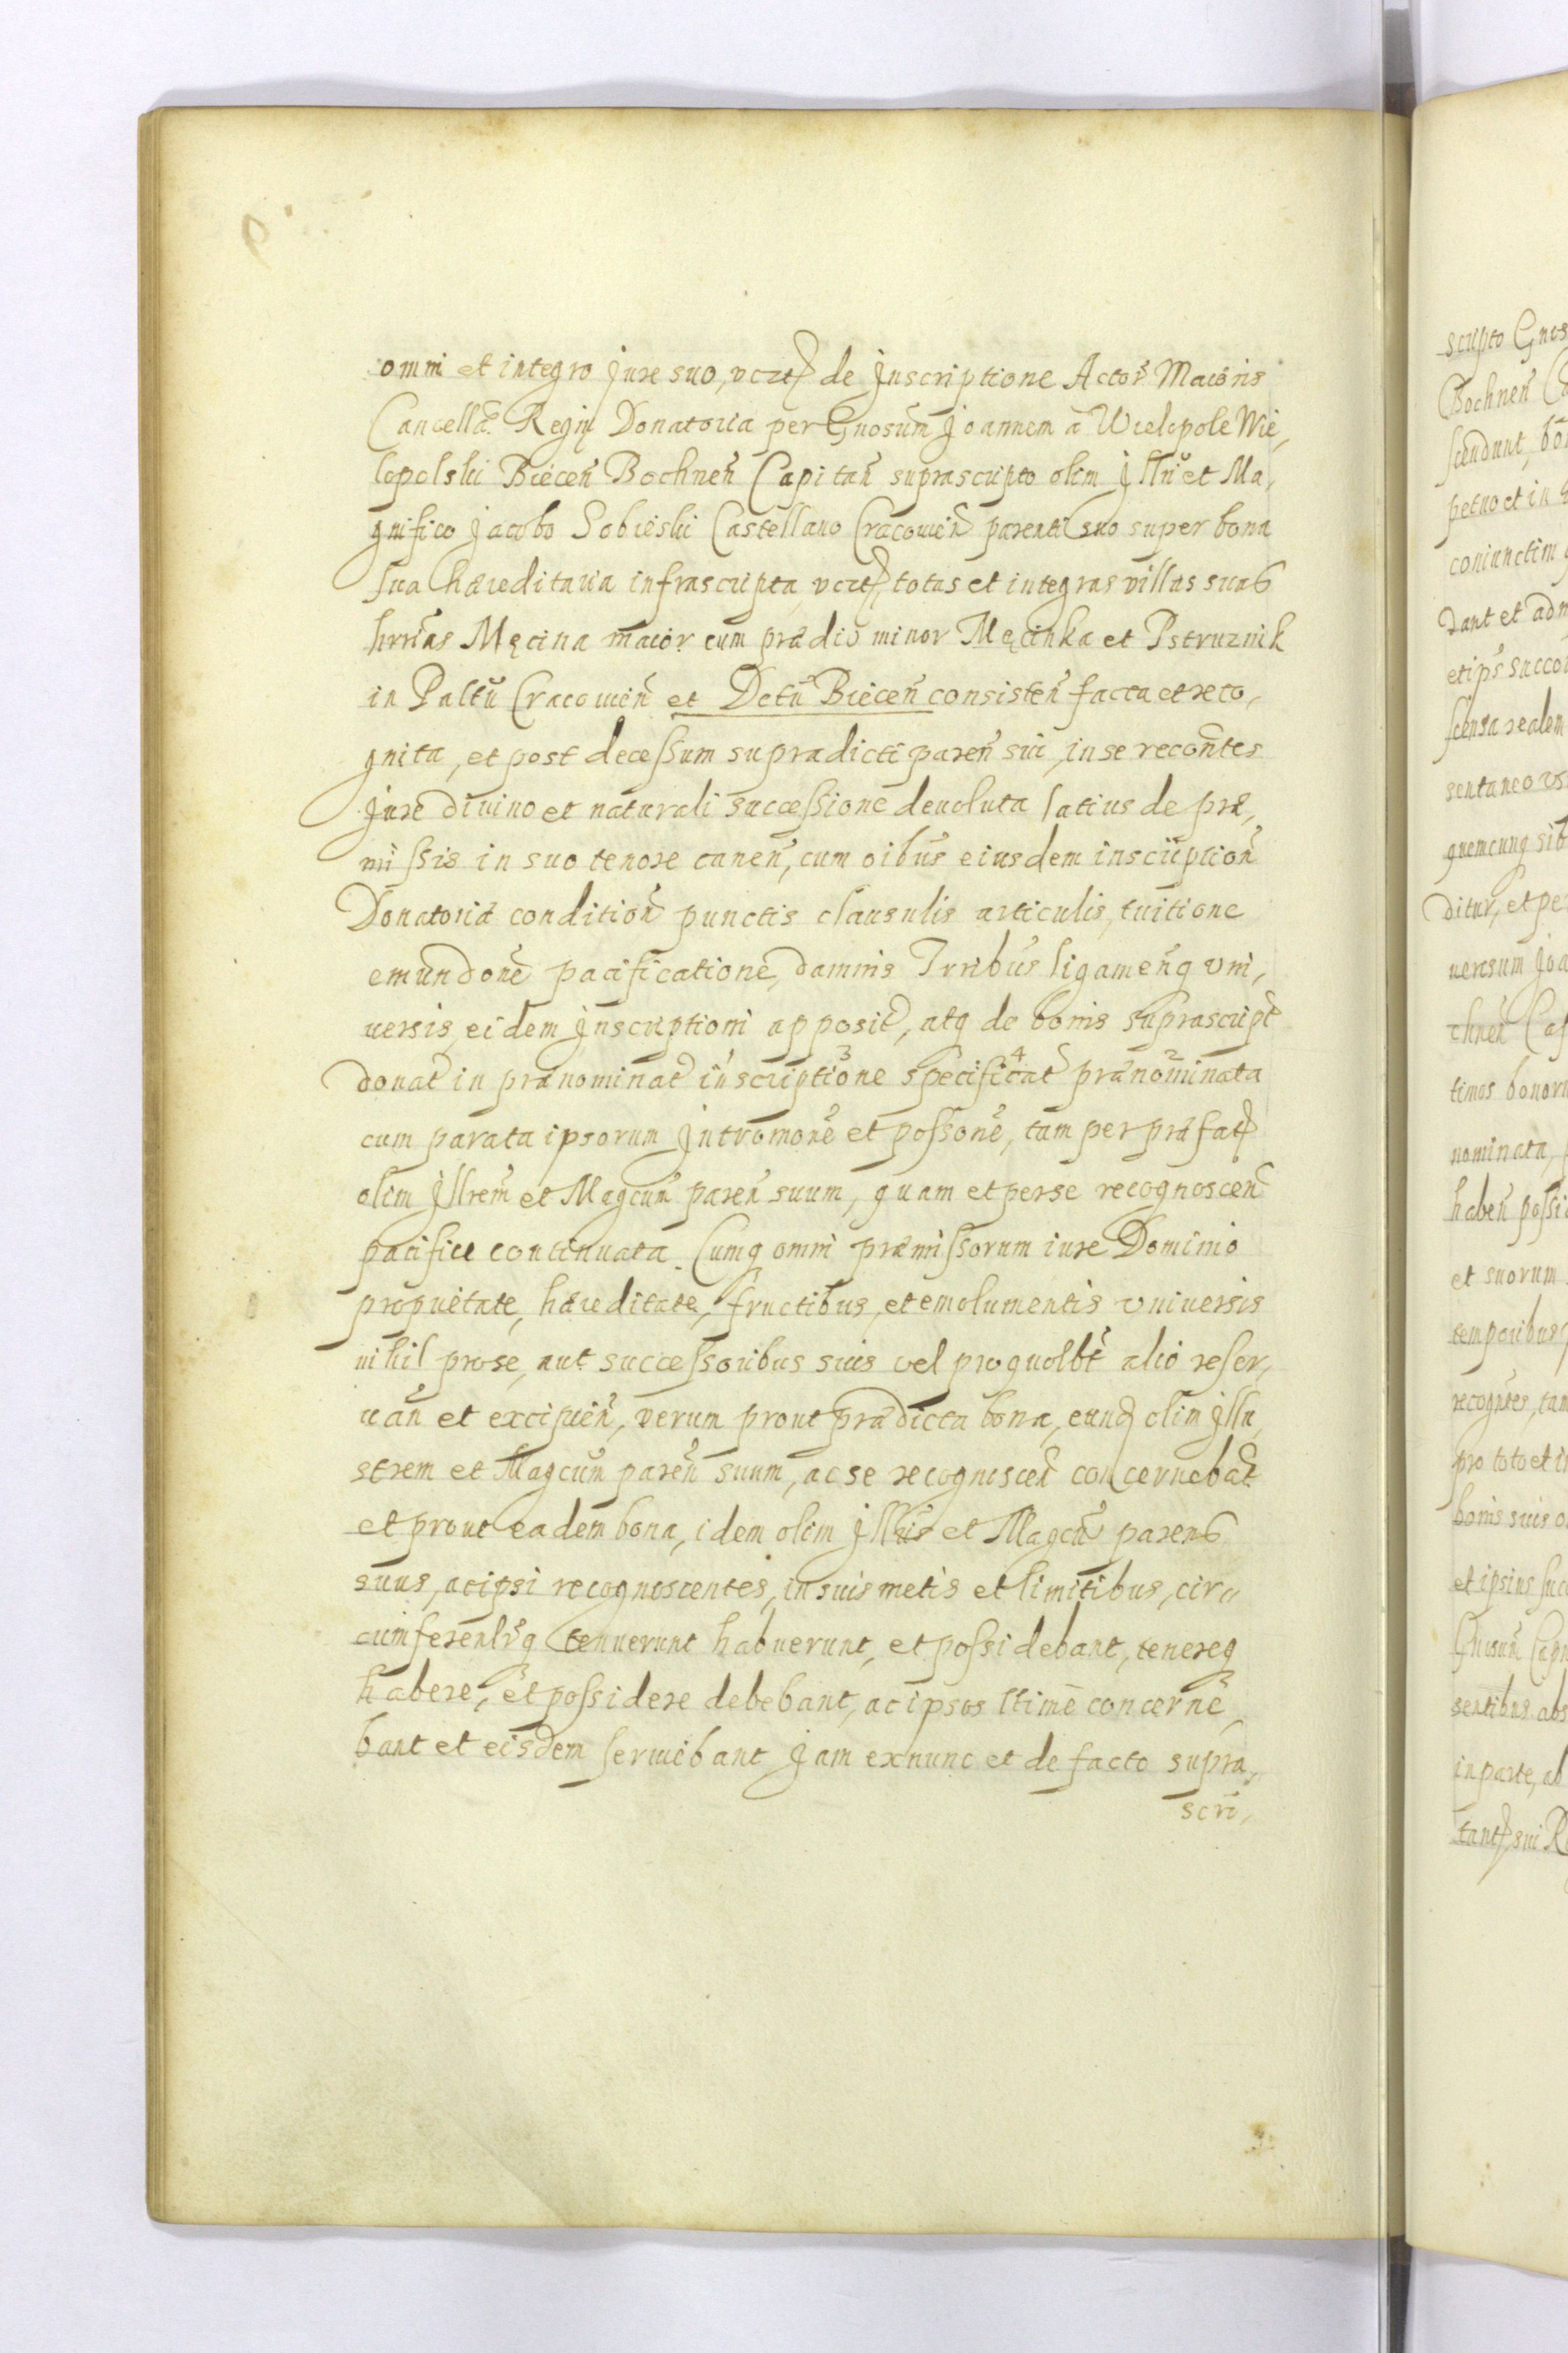 omni et integro Jure suo, vczt de Jnscriptione Actor̃ Maioris
Cancellæ Regni Donatoria per Gnosum Joannem à Wielopole Wie,
lopolski Biecen̄ Bochnen̄ Capitan̄ suprascripto olim Jllri et Ma,
gnifico Jacobo Sobieski Castellano Cracovien̄ parenti suo super bona
sua hæreditaria infrascripta, vczt, totas et integras villas suas
hrrias Męcina maior cum prædio minor Męcinka et Pstruznik
in Paltu Cracovien̄ et Dctu Biecen̄ consisten̄ facta et reco,
gnita, et post decessum supradicti paren̄ sui, in se recontes
Jure divino et naturali successione devoluta latius de præ,
missis in suo tenore canen̄, cum oibus eiusdem inscription̄
Donatoriæ condition̄ punctis clausulis articulis, tuitione
emundone pacificatione, damnis Trribus ligamenq vni,
versis eidem Jnscriptioni apposit, atq de bonis suprascript
donat in prænominat inscriptione specificat prænominata
1 3 4 2
cum parata ipsorum Jntromone et possone, tam per præfat
olim Jllrem et Magcum paren̄ suum, quam et per se recognoscen̄
pacifice continuata. Cumq omni præmissorum iure Dominio
proprietate, hæreditate, fructibus, et emolumentis vniversis
nihil pro se, aut successoribus suis vel pro quolbt alio reser,
van̄ et excipien̄, verum prout prædicta bona, eund olim Jllu,
strem et Magcum paren̄ suum, ac se recognoscen̄ concernebat
et prout eadem bona, idem olim Jllris et Magcus parens
suus, ac ipsi recognoscentes, in suis metis et limitibus, cir,,
cumferenlrq tenuerunt habuerunt, et possidebant, tenereq
habere, et possidere debebant, ac ipsos ltime concerne,
bant et eisdem serviebant Jam ex nunc et de facto supra,
scri,
scripto
Bochnen̄
scendunt,
petuo et in
coniunctim
dant et
et ips
realem
sentaneo
quemcunq
ditur, et
versum
chnen̄
timos
nominata,
haben̄
et suorum
temporibus
recogntes, tam
pro toto et
bonis suis
et ipsius
sentibus
in parte, ab
sui